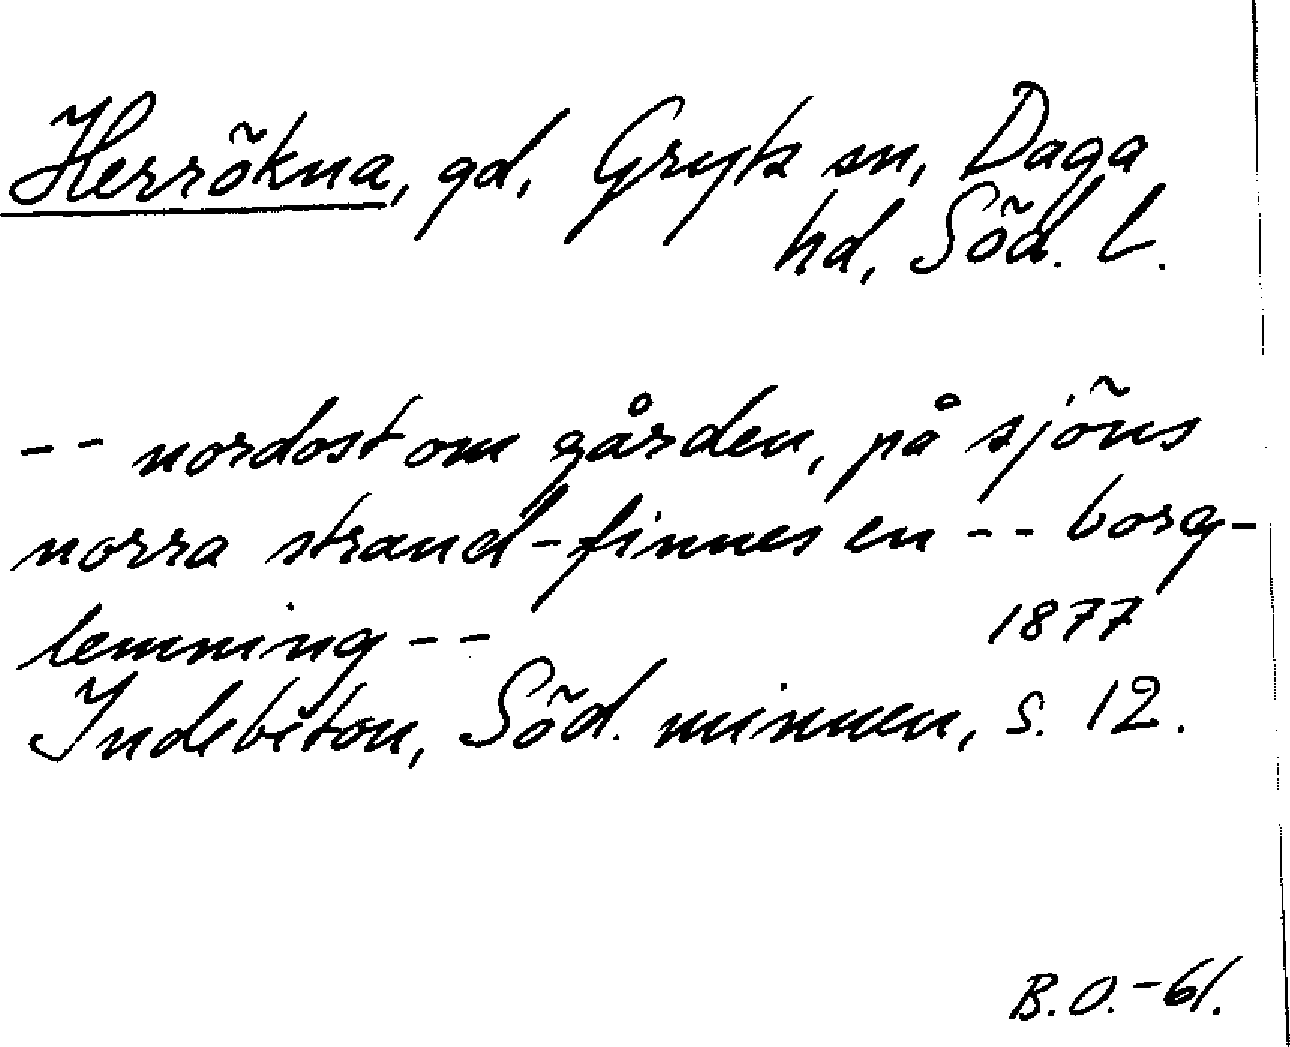 Herrökna, gd, Gryts sn, Daga
hd, Söd. l.
-- nordost om gården, på sjöns
norra strand - finnes en -- borg-
lemning --
1877
Indebetou, Söd. minnen, s. 12.
B.O.-61.